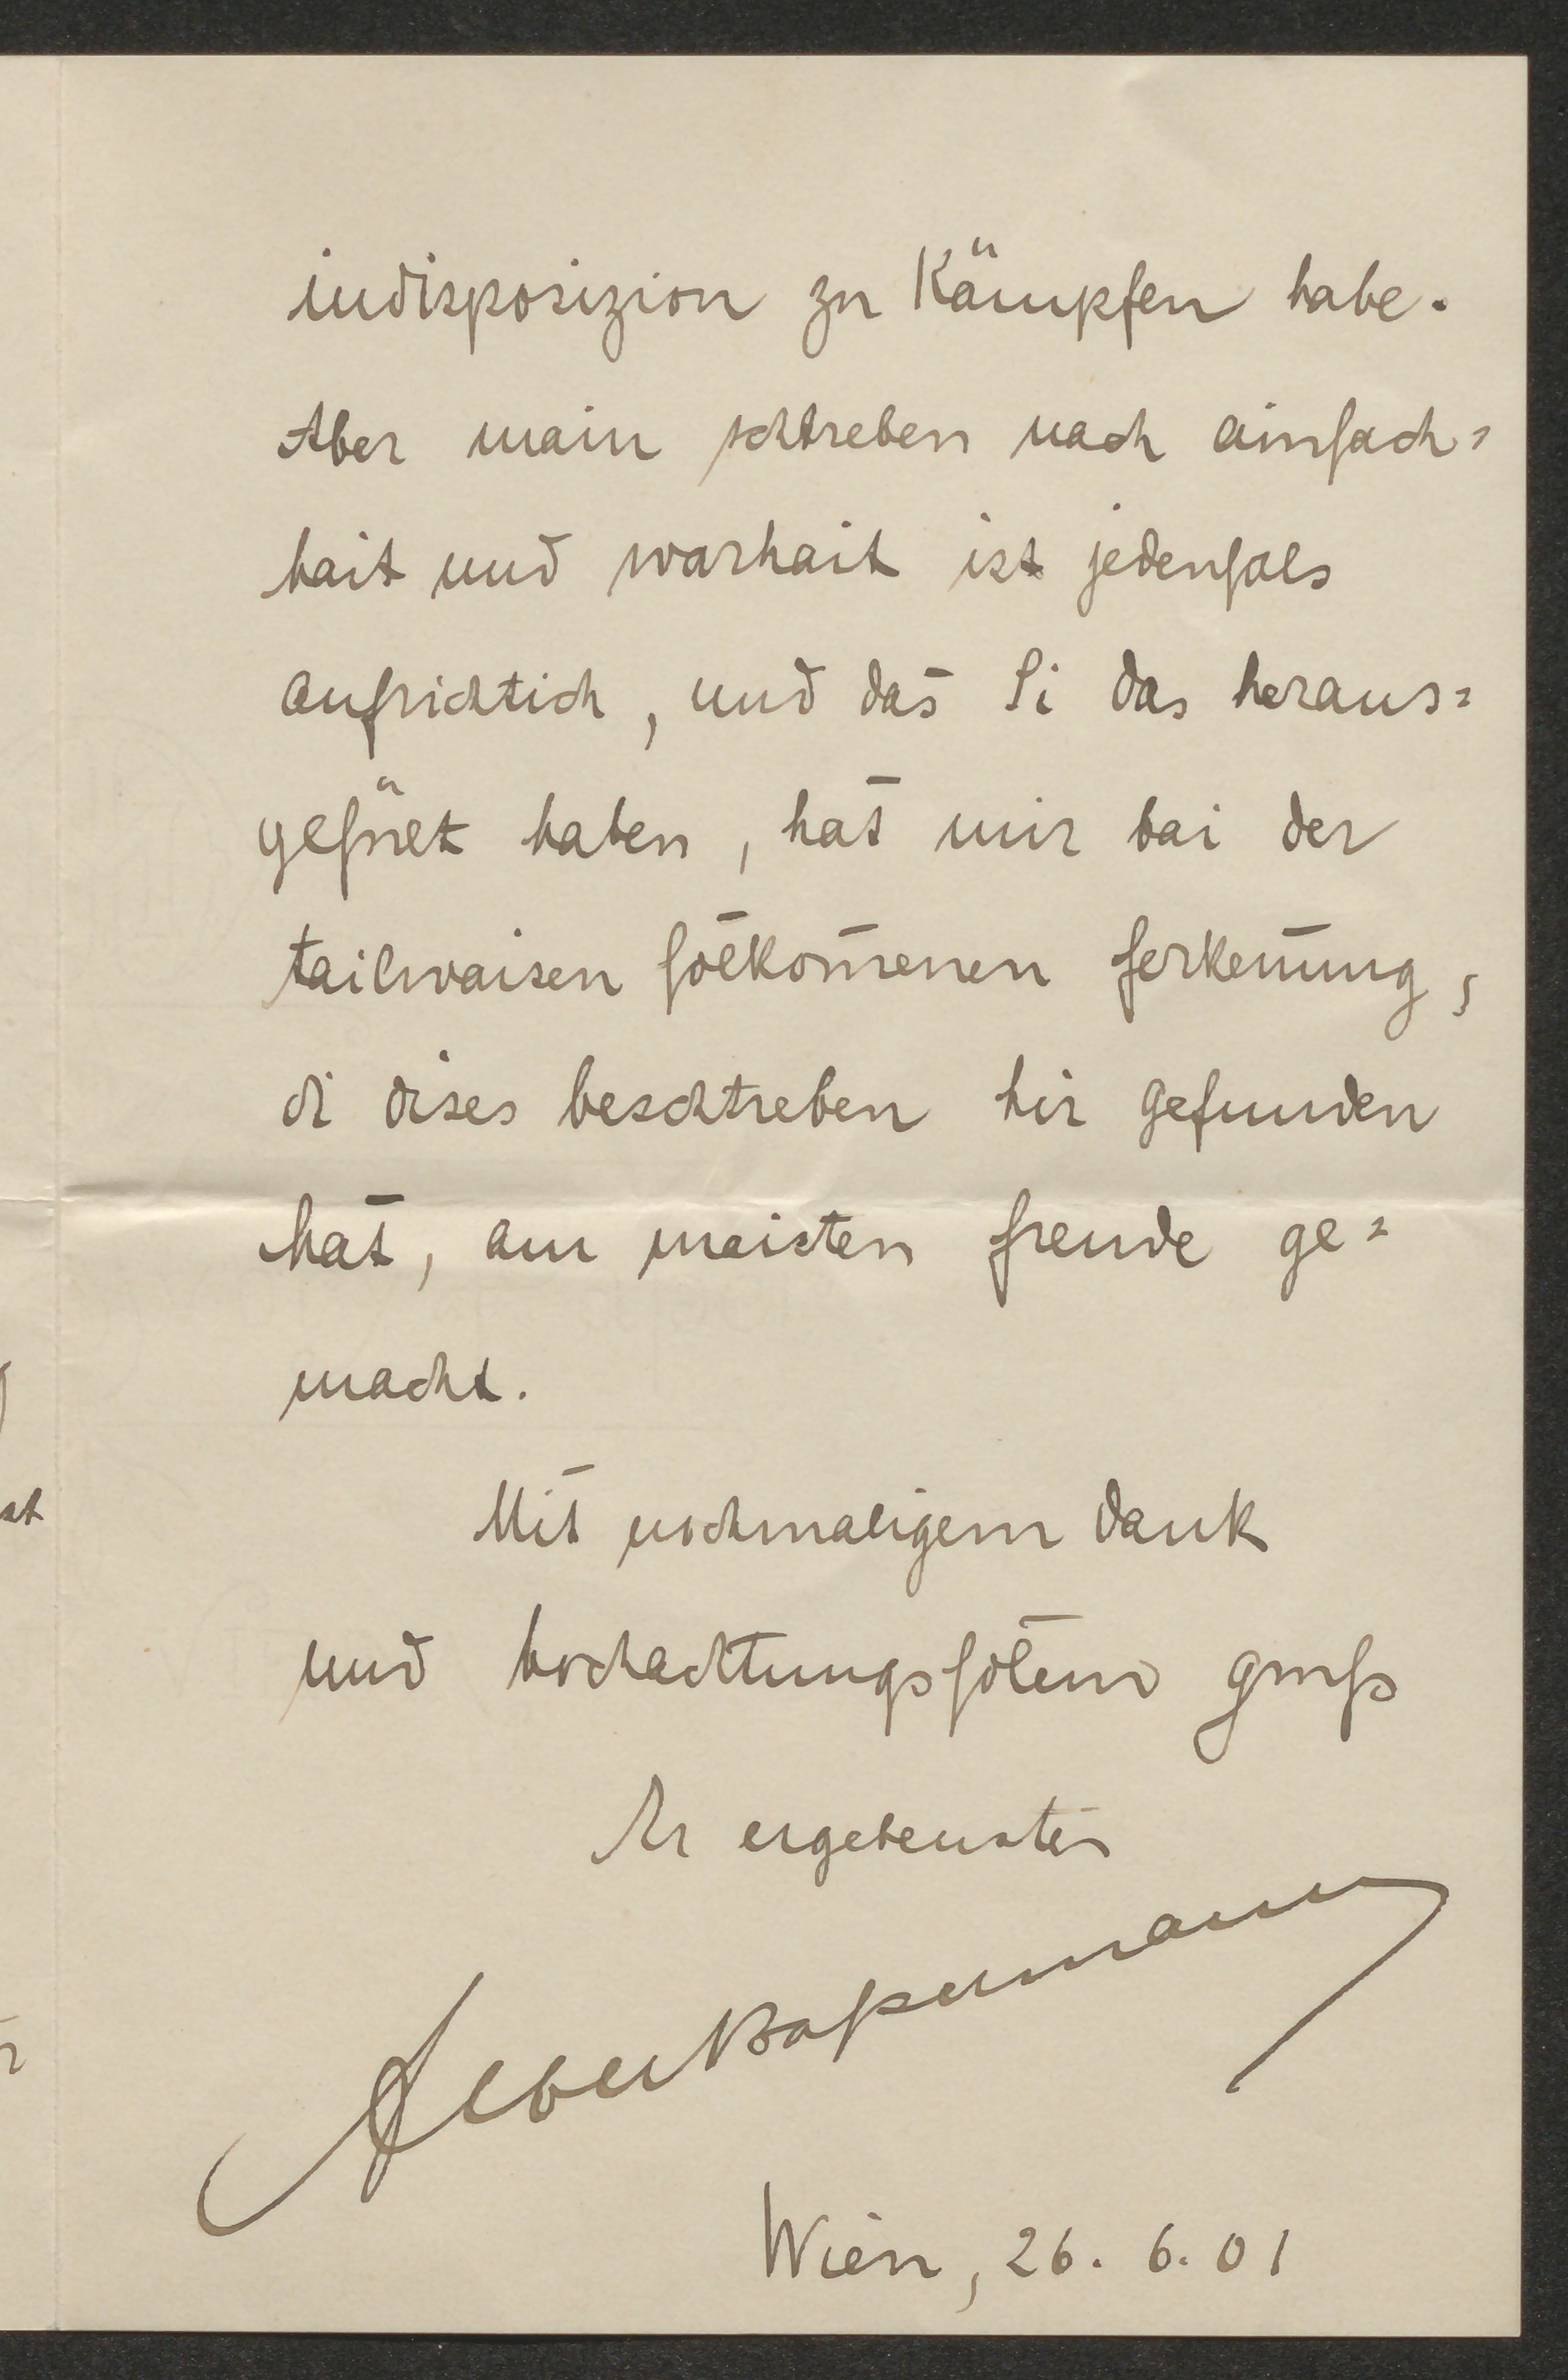 indisposizion zu kämpfen habe.
Aber main schtreben nach ainfach=
hait und warhait ist jedenfals
aufrichtich, und das̄ Si das heraus=
gefület haben, hat̄ mir bai der
tailwaisen fol̄kom̄enen ferken̄ung,
di dises beschtreben hir gefunden
hat̄, am maisten freude ge=
macht.
Mit̄ nochmaligem dank
und hochachtungsfol̄em gruß
Ir ergebenster
Wien, 26. 6. 01